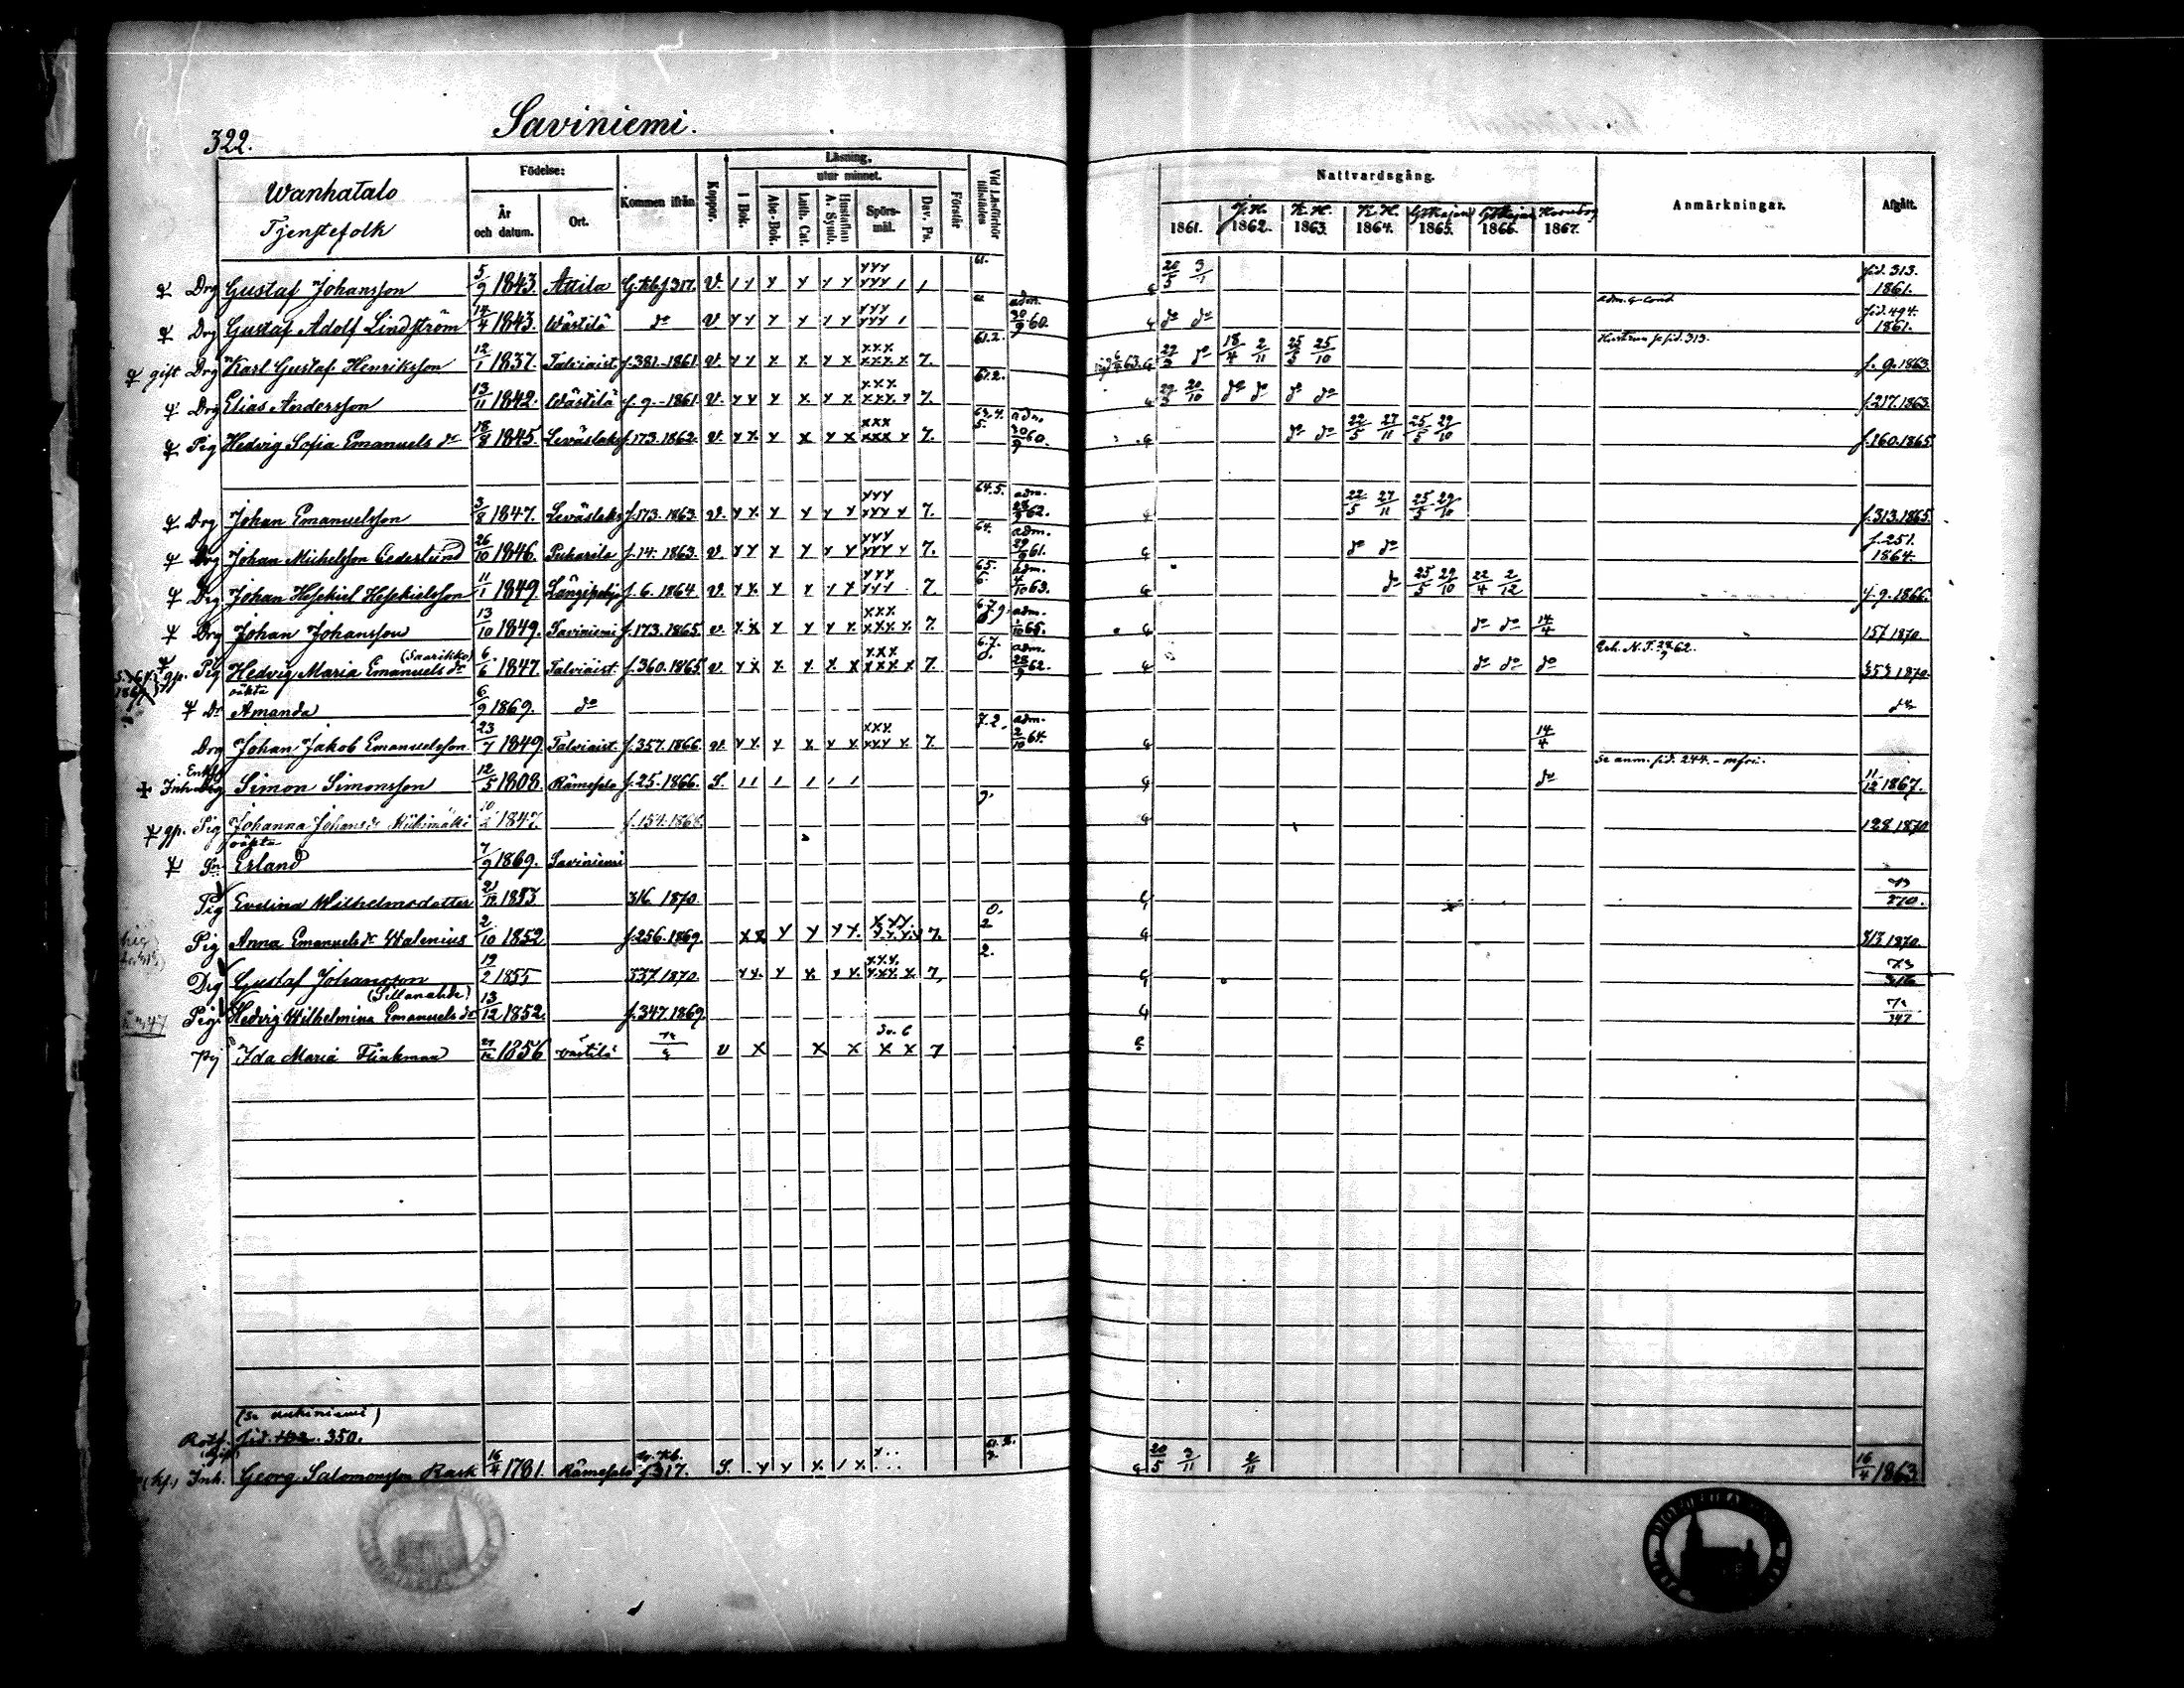 322.
Saviniemi.
Wanhatalo
Tjenstefolk
Födelse:
År och datum.
Ort.
Kommen ifrån
Koppor.
Läsning.
utur minnet.
I Bok.
Abc-Bok.
Luth. Cat.
Hustaflan A. Symb.
Spörs-mål.
Dav. Ps.
Förstår
Vid Läsförhör tillstädes
Nattvardsgång.
1861. 1862. 1863. 1864. 1865. 1866. 1867.
Anmärkningar.
Afgått.
Drg Gustaf Johansson 5/9 1843. Attila G.Kb.f.317. V. 61. 20/5 3/11 sid. 313. 1861.
Drg Gustaf Adolf Lindström 14/4 1843. Wästilä do V. adm. 30/9 60. do do adm. g. cond sid. 494. 1861.
gift Drg Karl Gustaf Henriksson 12/1 1837. Talviaist. f.381-1861. V. 7. 61.2. 18/4 2/11 25/5 25/10 Hustrun se sid. 313. f. 9. 1863.
Drg Elias Andersson 13/11 1842. Wästilä f. 9.-1861 V. 7. 61.2. 20/10 do do do do f.217.1863.
Pig Hedvig Sofia Emanuels dr 18/8 1845. Leväslaks f.173.1862. V. 7. 63.4. 5. adm. 30/9 60. do do 22/5 27/11 25/5 29/10 f.160.1865.
Drg Johan Emanuelsson 3/8 1847. Leväslaks f.173.1863. V. 7. 64.5. adm. 28/9 62. 22/5 27/11 25/5 29/10 f.313.1865.
Drg Johan Michelsson Cederlund 26/10 1846. Puharila f.14.1863. V. 7. 64. adm. 29/9 61. do do f.251. 1864.
Drg Johan Hesekiel Hesekielsson 11/1 1849. Längipohja f. 6. 1864 V. 7. 65. 6. adm. 4/10 63. do 25/5 29/10 22/4 2/12 f. 9. 1866.
Drg Johan Johansson 13/10 1849. Saviniemi f.173.1865. v. 7. adm. 1/10 65. do do 14/4 157 1870
gp. Pig Hedvig Maria Emanuels dr (Saarikko) 6/6 1847. Talviaist. f.360.1865. v. 7. 6.7. adm. 28/9 62. do do do Erh. N.T. 28/9 62. 353 1870.
oäkta
Dr Amanda 6/9 1869. do do
Drg Johan Jakob Emanuelsson 23/7 1849 Talviaist. f.357.1866. v. 7. 7.2. adm. 2/10 64. 14/4
Enkl.
Inh. Simon Simonsson 12/5 1808. Rämesalo f.25.1866. S. do Se anm. sid. 244. 11/12 1867.
gp. Pig Johanna Johans dr 1847. f.154.1868. 9. 128 1870
oäkta
Sn Erland 7/9 1869. Saviniemi
Pig Evelina Wilhelmsdotter 21/12 1853 316 1870. 73/270.
Pig Anna Emanuels dr Walenius 2/10 1852 f.256.1869. 7. 0. 2 313 1870.
Drg Gustaf Johansson 19/2 1855 337 1870. 7. 2. 73/316
Pig Hedvig Wilhelmina Emanuels dr (Sillanahde) 13/12 1852. f.347.1869. 72/347
Pig Ida Maria Flinkman 27/12 1856 Västilä v 7
sid. 350.
Inh. Georg Salomonsson Rask 16/4 1781. Rämesalo G. Kb. f.317. S. 20/5 3/11 2/11 16/4 1863.